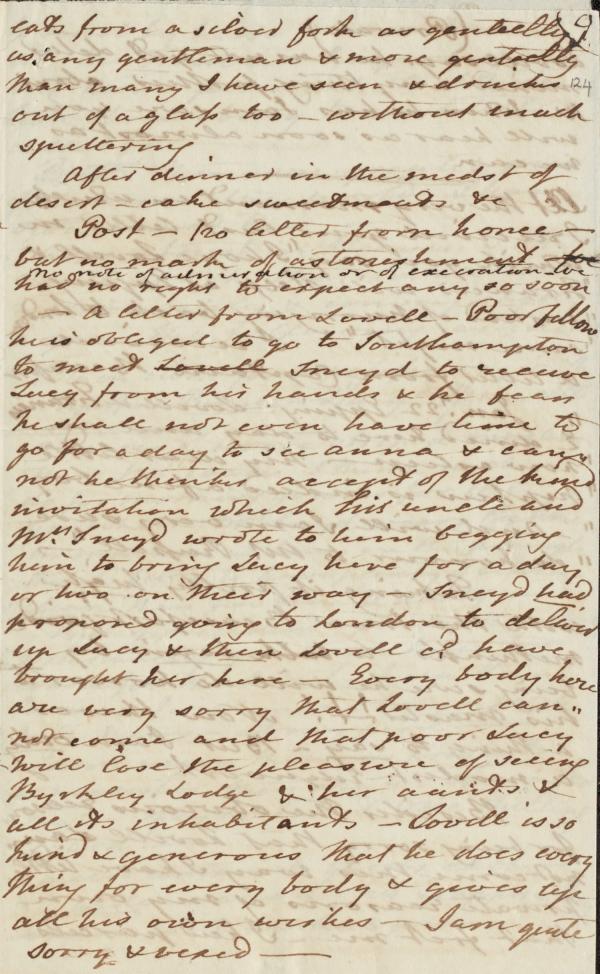 eats from a silver fork as genteelly 9
as any gentleman & more genteelly
than many I have seen & drinks 124
out of a glass too – without much
sputtering
After dinner in the medst of
desert – cake sweetmeats &c
Post – no letter from home –
but no mark of astonishment
no note of admiration or of execration we
had no right to expect any so soon
– A letter from Lovell – Poor fellow
he is obliged to go to Southampton
to meet Lovell Sneyd to receive
Lucy from his hands & he fears
he shall not even have time to
go for a day to see anna & can"
not he thinks accept of the kind
invitation which his uncle and
Mrs Sneyd wrote to him begging
him to bring Lucy here for a day
or two on their way – Sneyd had
proposed going to London to deliver
up Lucy & then Lovell cd have
brought her here – Every body here
are very sorry that Lovell can"
not come and that poor Lucy
will lose the pleasure of seeing
Byrkley Lodge & her aunts &
all its inhabitants – Lovell is so
kind & generous that he does every
thing for every body & gives up
all his own wishes – I am quite
sorry & vexed –